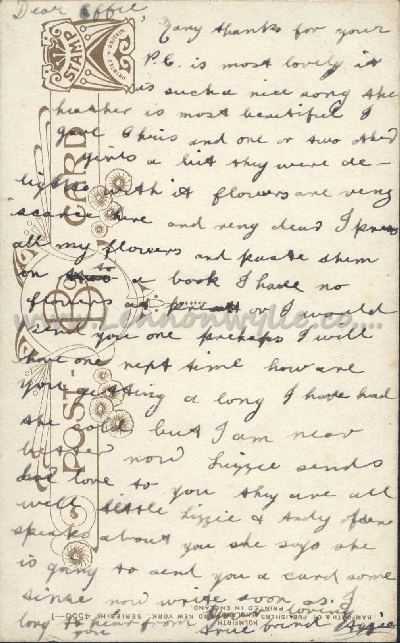 Dear Effie,
Many thanks for your
P.C. is most lovely it
is such a nice song the
heather is most beautiful I
gave Chris and one or two other
girls a bit they were de-
lighted with it flowers are very
scarce here and very dear I press
all my flowers and paste them
on to a book I have no
flowers at present or I would
send you one perhaps I will
have one next time how are
you getting a long I have had
the cold but I am near
better now Lizzie sends
her love to you they are all
well little Lizzie & Andy often
speaks about you she says she
is going to send you a card some
time now write soon as I
long to hear from you
your loving
true friend Aggie
STAMP
PRINTED IN BRITAIN
POST CARD
www.Lennonwylie.co....
BAMFORTH & CO PUBLISHERS HOLMFIRTH ENGLAND AND NEW YORK. SERIES No 4556-1
PRINTED IN ENGLAND